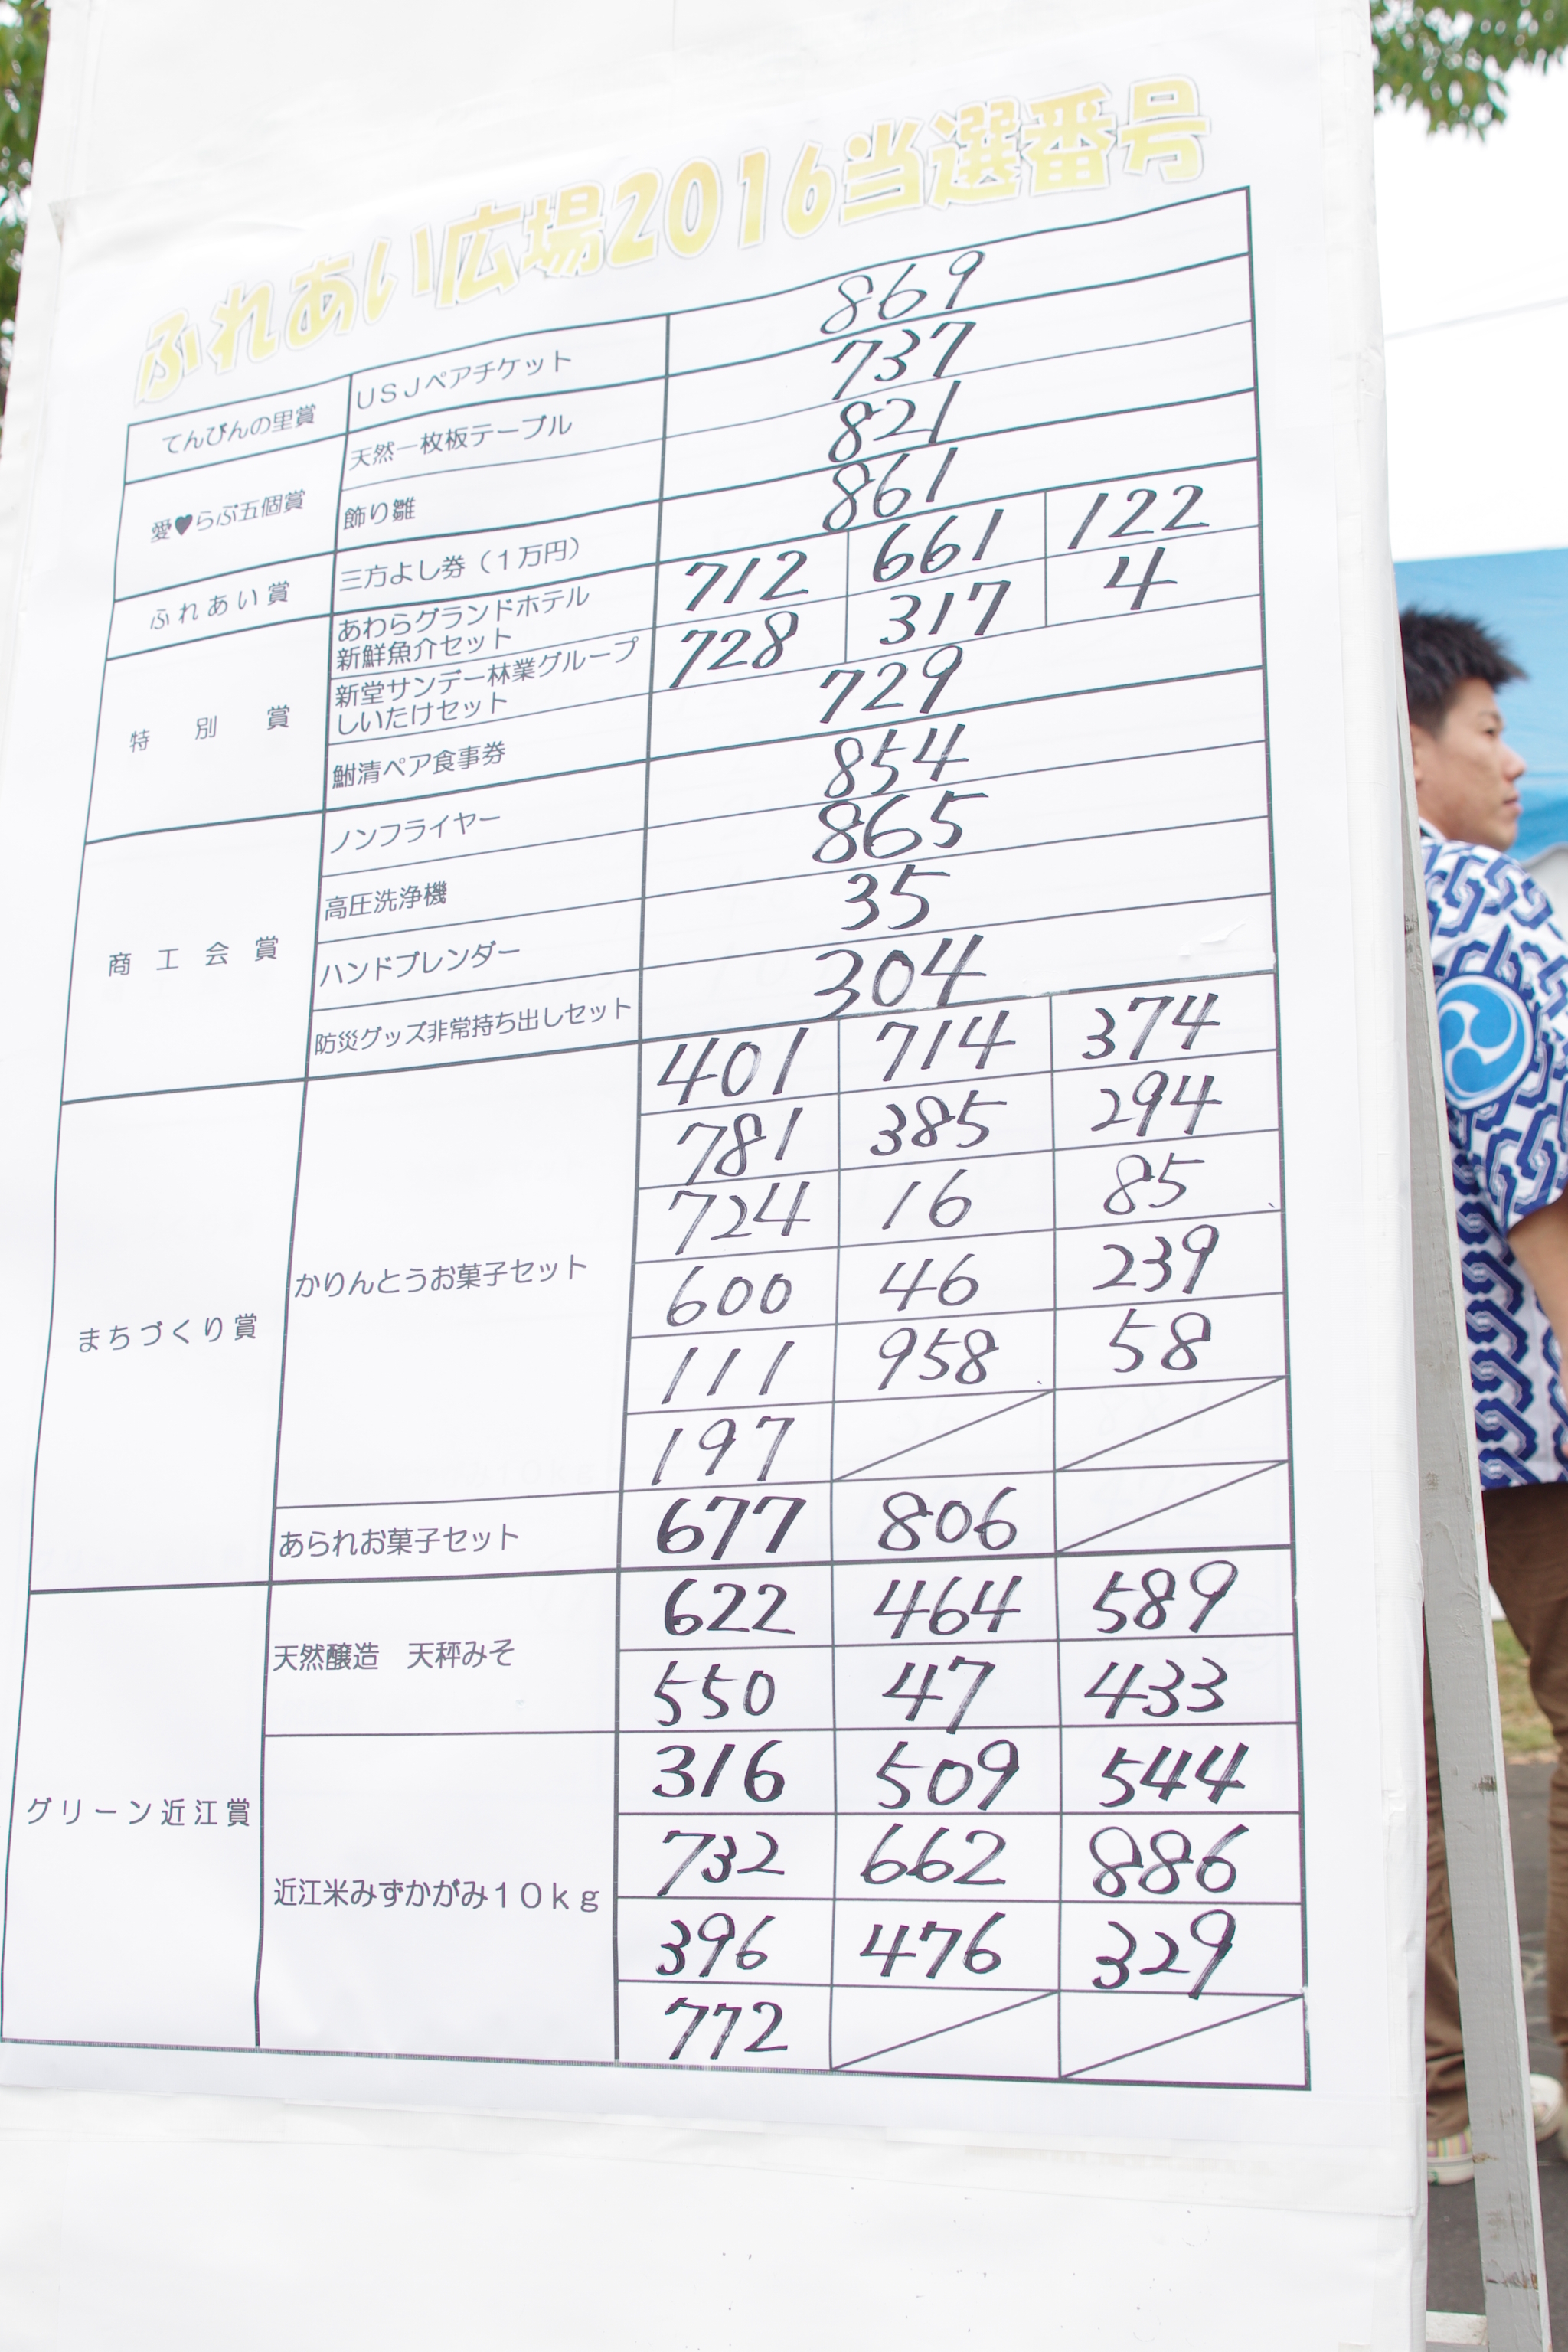 ふれあい広場2016当選番号
てんびんの里賞 USJペアチケット 869
愛♥らぶ五個賞 天然一枚板テーブル 737
飾り雛 821
ふれあい賞 三方よし券（1万円） 861
特別賞 あわらグランドホテル
新鮮魚介セット 712 661 122
新堂サンデー林業グループ
しいたけセット 728 317 4
鮒清ペア食事券 729
商工会賞 ノンフライヤー 854
高圧洗浄機 865
ハンドブレンダー 35
防災グッズ非常持ち出しセット 304
まちづくり賞 かりんとうお菓子セット 401 714 374
781 385 294
724 16 85
600 46 239
111 958 58
197
あられお菓子セット 677 806
グリーン近江賞 天然醸造　天秤みそ 622 464 589
550 47 433
近江米みずかがみ10kg 316 509 544
732 662 886
396 476 329
772